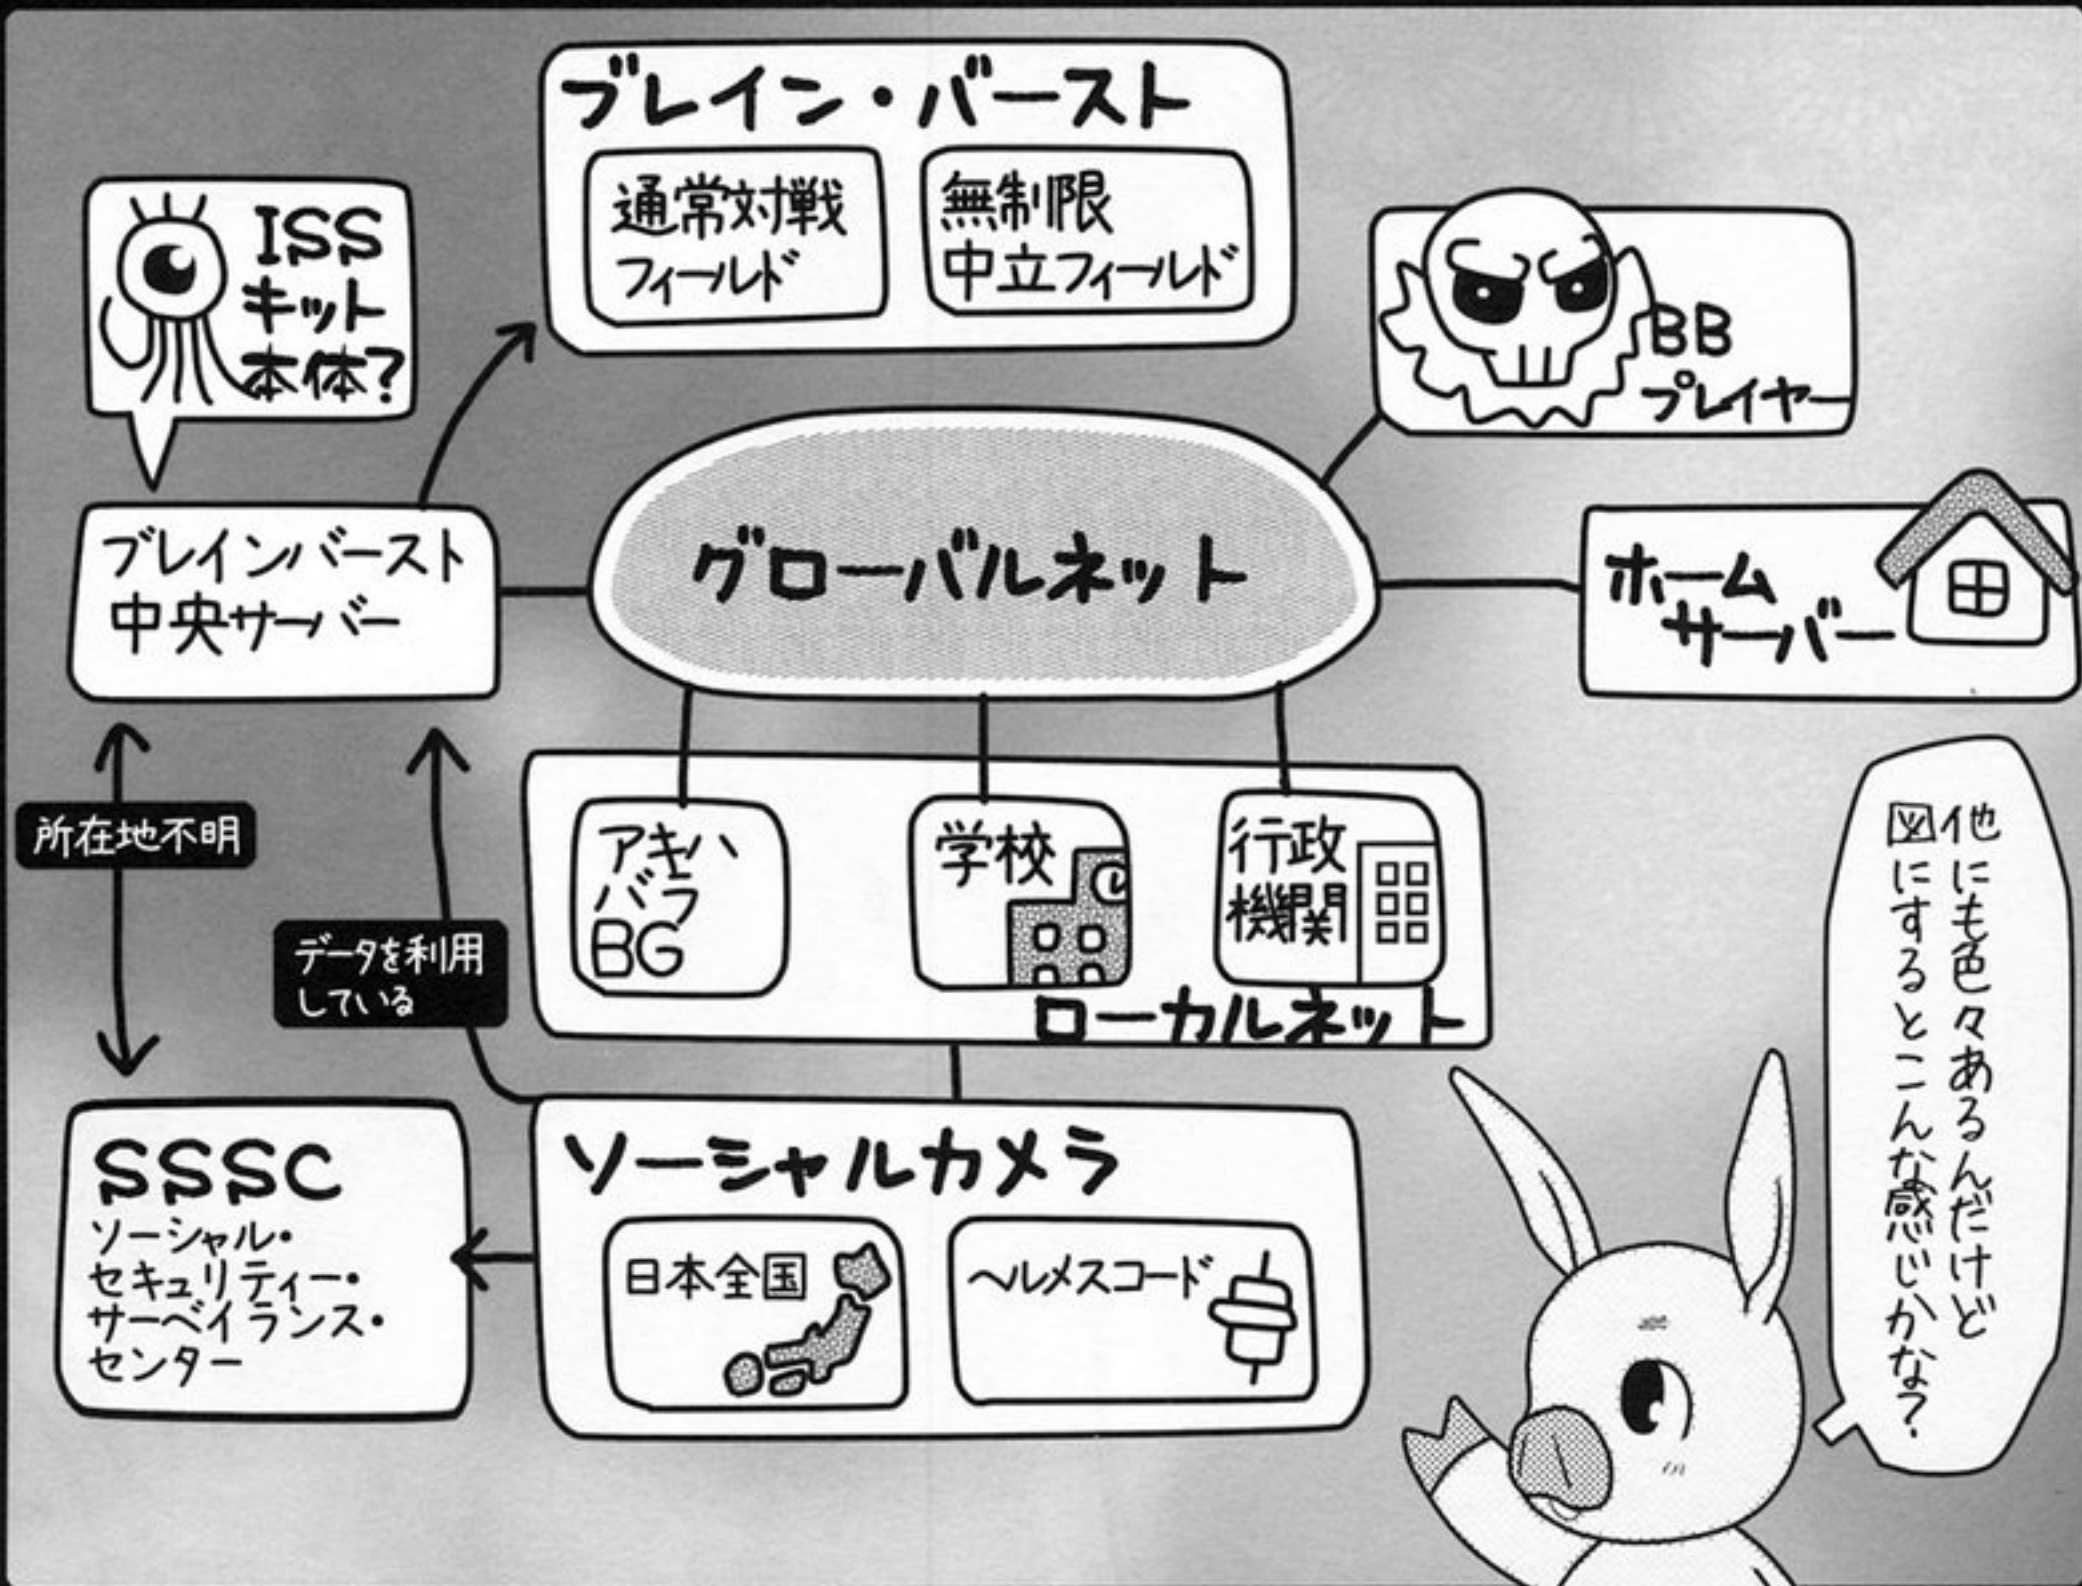 ブレイン・バースト
通常対戦
フィールド
無制限
中立フィールド
ISS
キット
本体?
BB
プレイヤー
ブレインバースト
中央サーバー
グローバルネット
ホーム
サーバー
所在地不明
データを利用
している
アキハ
バラ
BG
学校
行政
機関
ローカルネット
SSSC
ソーシャル・
セキュリティー・
サーベイランス・
センター
ソーシャルカメラ
日本全国
ヘルメスコード
他にも色々あるんだけど
図にするとこんな感じかな?